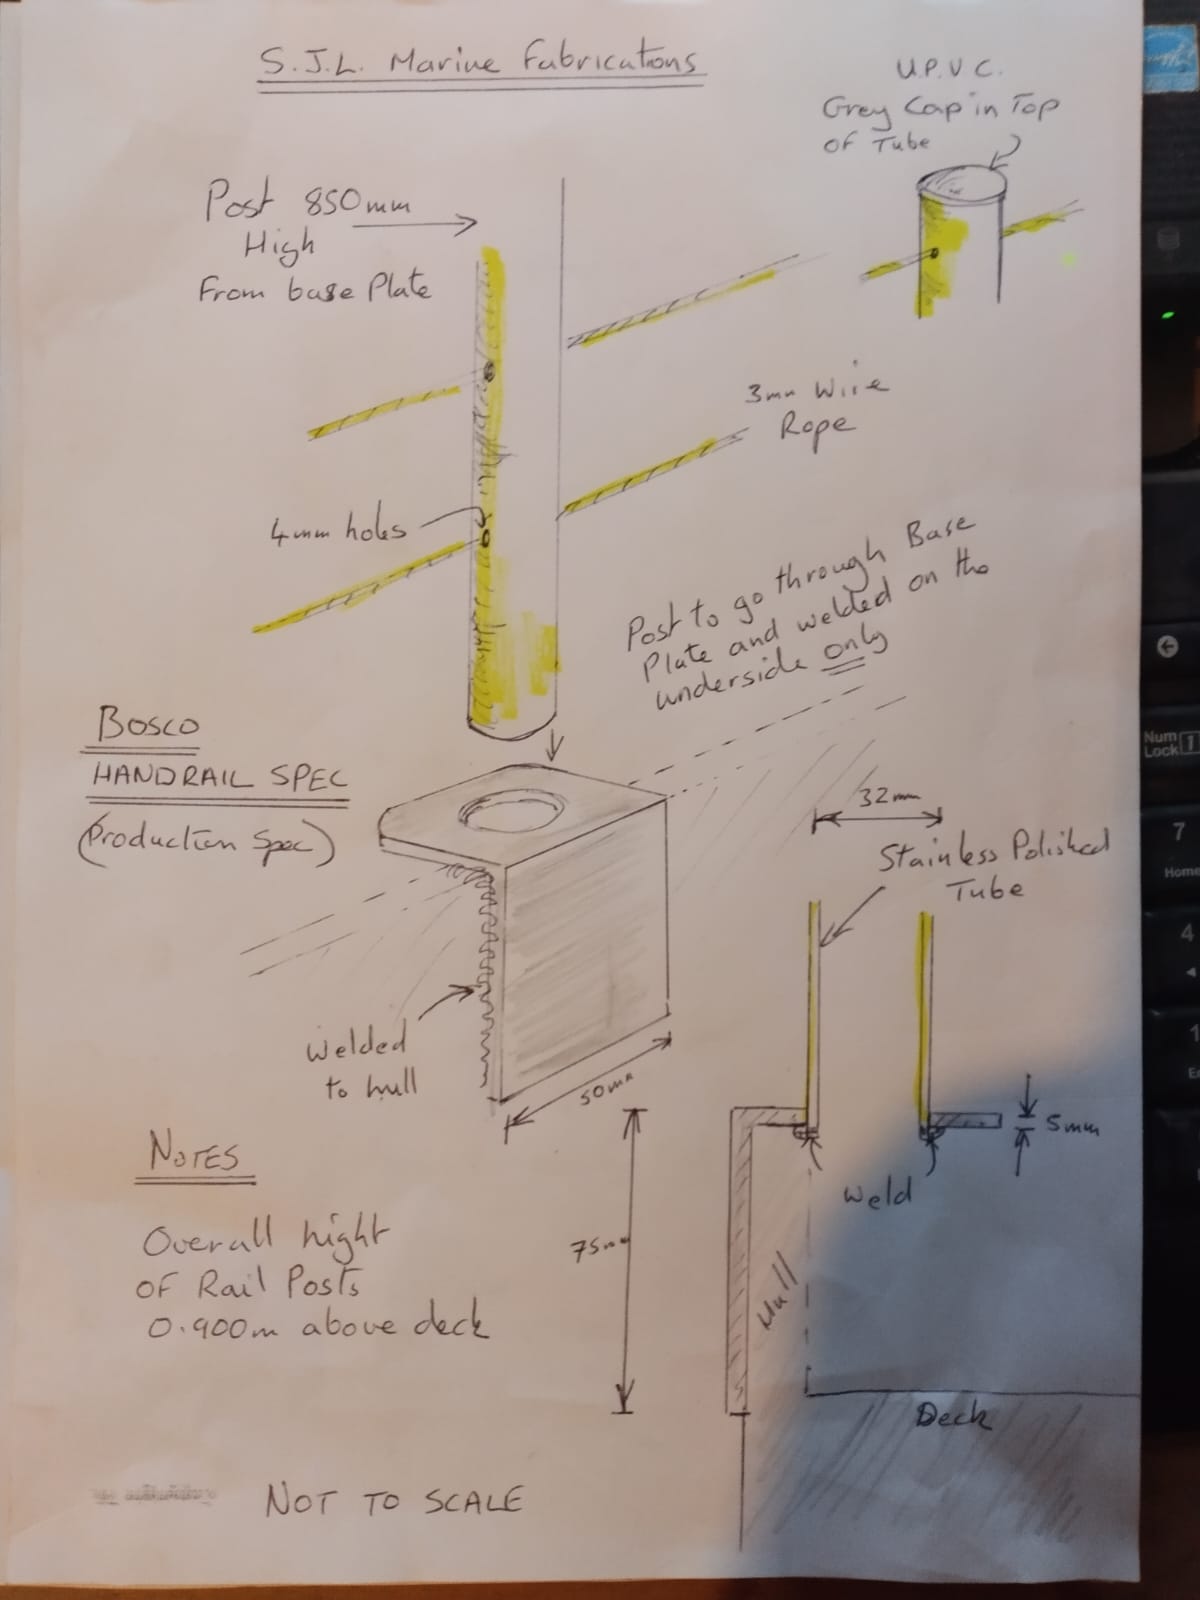 S.J.L. Marine Fabrications
U.P.V C.
Grey Cap in Top
OF Tube
Post 850mm
High
From base Plate
3mm Wire
Rope
4mm holes
Post to go through Base
Plate and welded on the
underside only
BOSCO
HANDRAIL SPEC
(Production Spec)
32mm
Stainless Polished
Tube
Welded
to hull
50mm
5mm
Weld
NOTES
Overall hight
OF Rail Posts
0.900m above deck
75mm
Hull
Deck
NOT TO SCALE
Num
Lock
1
7
Home
4
1